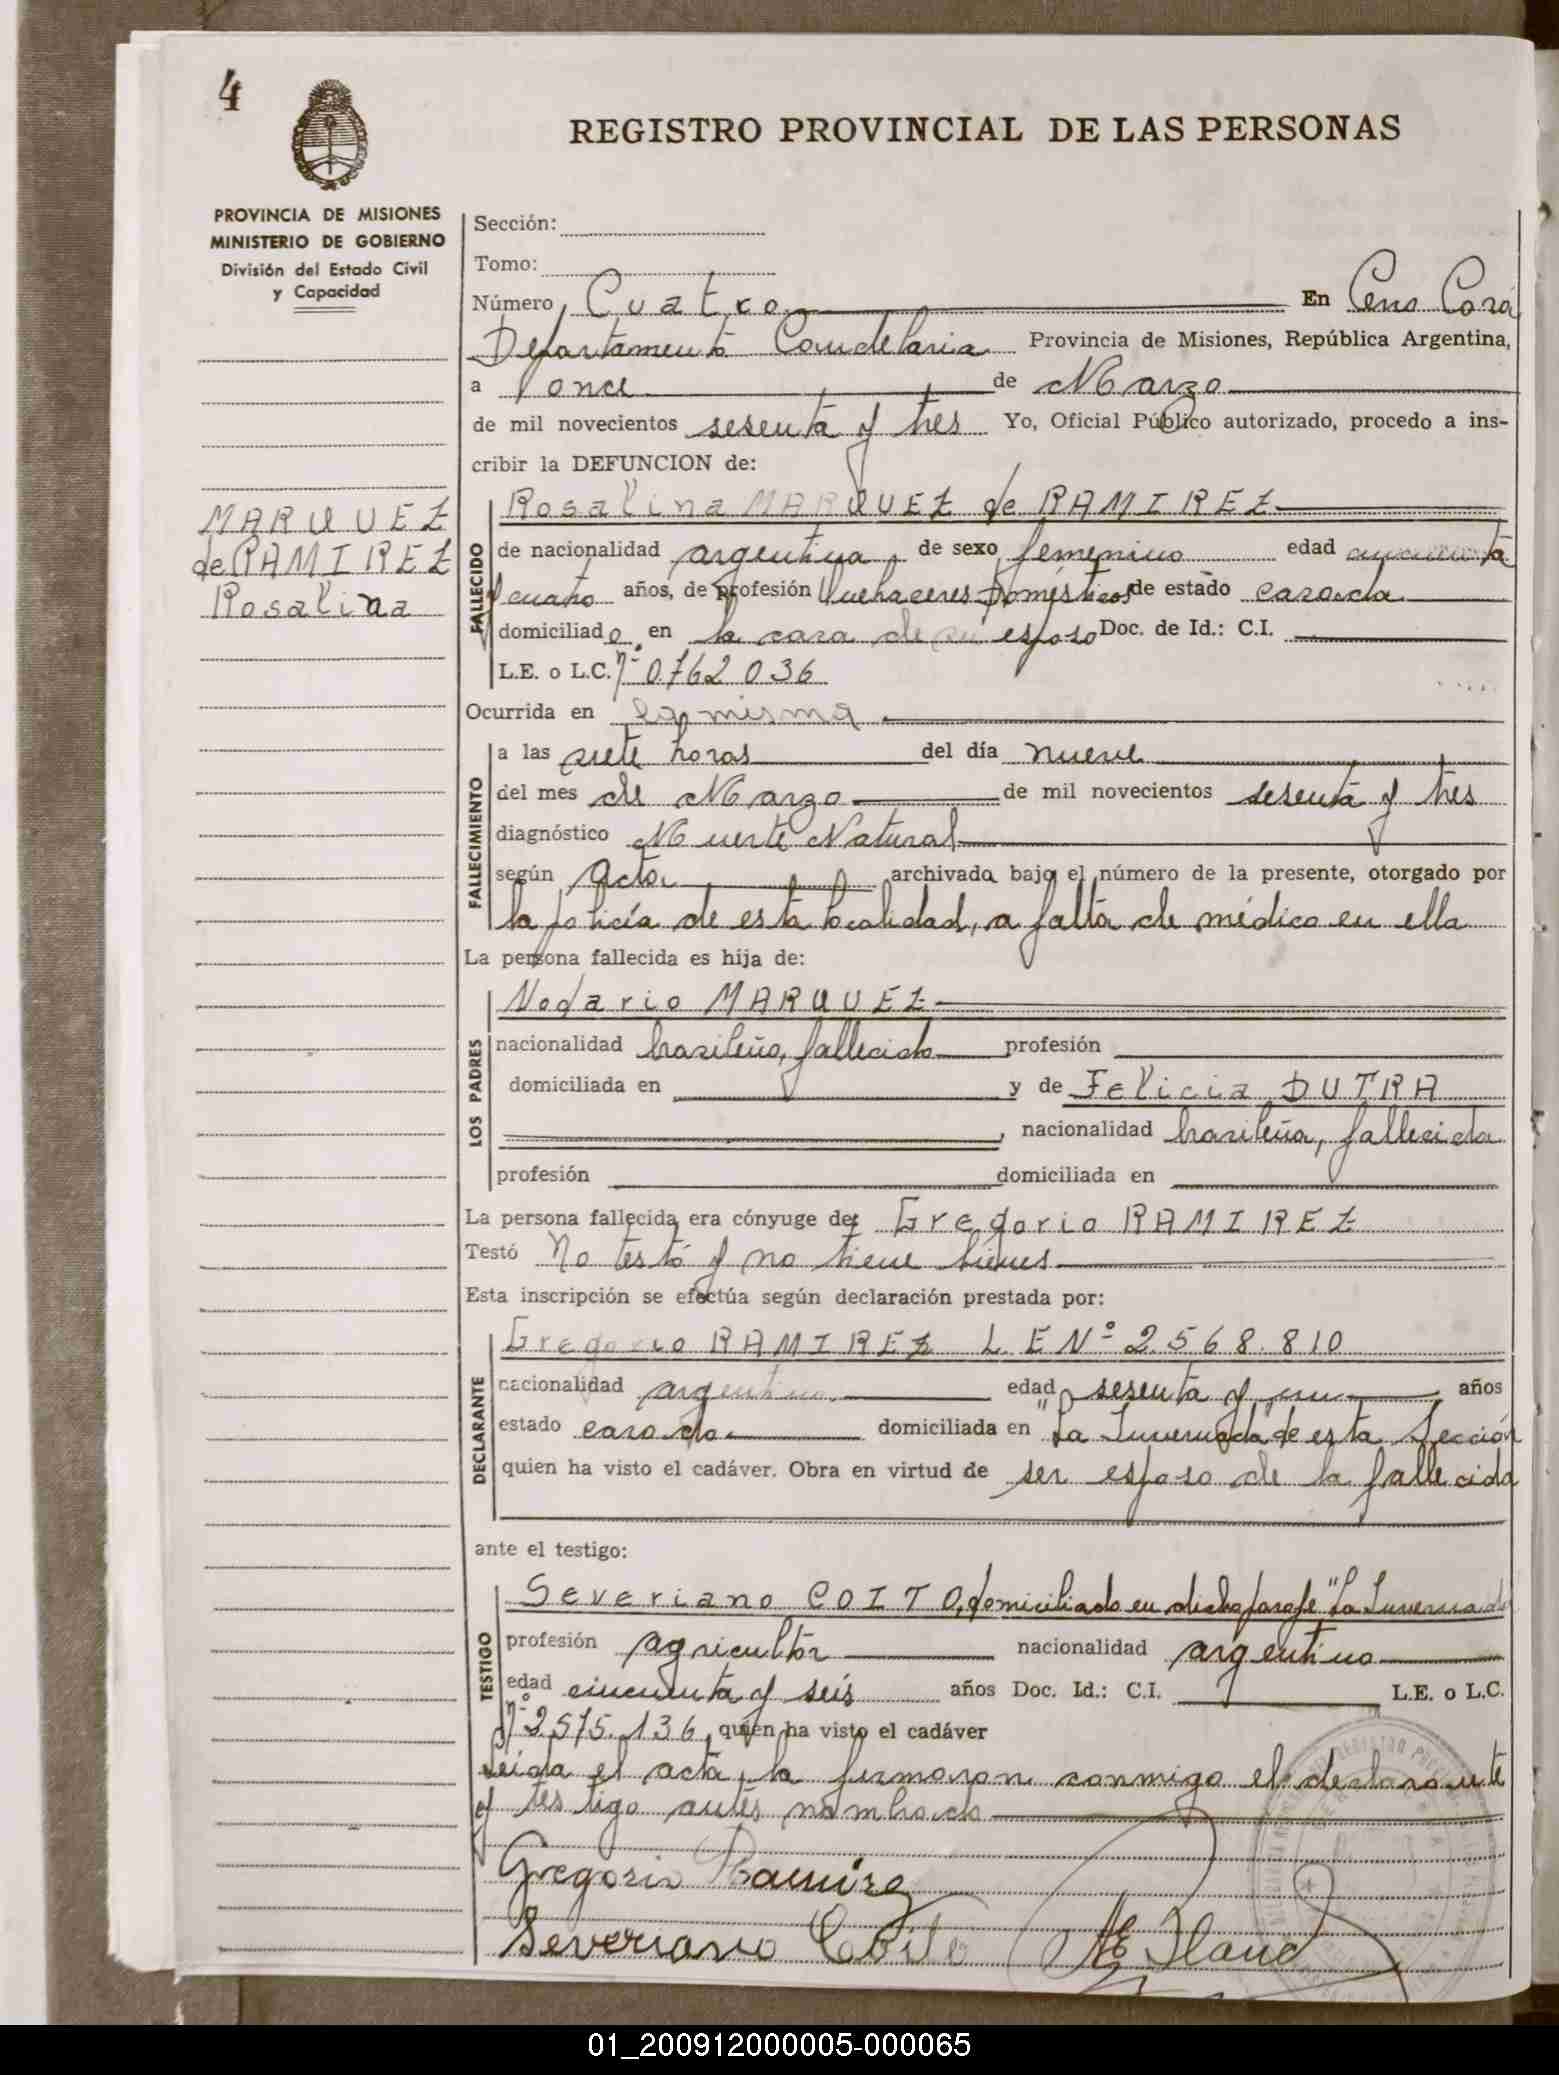 4
REGISTRO PROVINCIAL DE LAS PERSONAS
PROVINCIA DE MISIONES
MINISTERIO DE GOBIERNO
División del Estado Civil
y Capacidad
MARQUEZ
de RAMIREZ
Rosalina
Sección:
Tomo:
Número Cuatro En Cerro Corá
Departamento Candelaria Provincia de Misiones, República Argentina,
a once de Marzo
de mil novecientos sesenta y tres Yo, Oficial Público autorizado, procedo a ins-
cribir la DEFUNCION de:
FALLECIDO
Rosalina MARQUEZ de RAMIREZ
de nacionalidad argentina de sexo femenino edad cincuenta
y cuatro años, de profesión Quehaceres Domésticos de estado casada
domiciliado en la casa de su esposo Doc. de Id.: C.I.
L.E. o L.C. Nº 0.762.036
Ocurrida en la misma
FALLECIMIENTO
a las siete horas del día nueve
del mes de Marzo de mil novecientos sesenta y tres
diagnóstico Muerte Natural
según acta archivada bajo el número de la presente, otorgado por
la policía de esta localidad, a falta de médico en ella
La persona fallecida es hija de:
LOS PADRES
Nodario MARQUEZ
nacionalidad brasileño, fallecido profesión
domiciliada en y de Felicia DUTRA
, nacionalidad brasileña, fallecida
profesión domiciliada en
La persona fallecida era cónyuge de: Gregorio RAMIREZ
Testó No testó y no tiene bienes
Esta inscripción se efectúa según declaración prestada por:
DECLARANTE
Gregorio RAMIREZ L. E Nº 2.568.810
nacionalidad argentino edad sesenta y un años
estado casado domiciliada en "La Invernada" de esta Sección
quien ha visto el cadáver. Obra en virtud de ser esposo de la fallecida
ante el testigo:
TESTIGO
Severiano COITO, domiciliado en dicho paraje "La Invernada"
profesión agricultor nacionalidad argentino
edad cincuenta y seis años Doc. Id.: C.I. L.E. o L.C.
Nº 2.575.136, quien ha visto el cadáver
Leída el acta, la firmaron conmigo el declarante
y testigo antes nombrado
Gregorio Ramirez
Severiano Coito
01_200912000005-000065